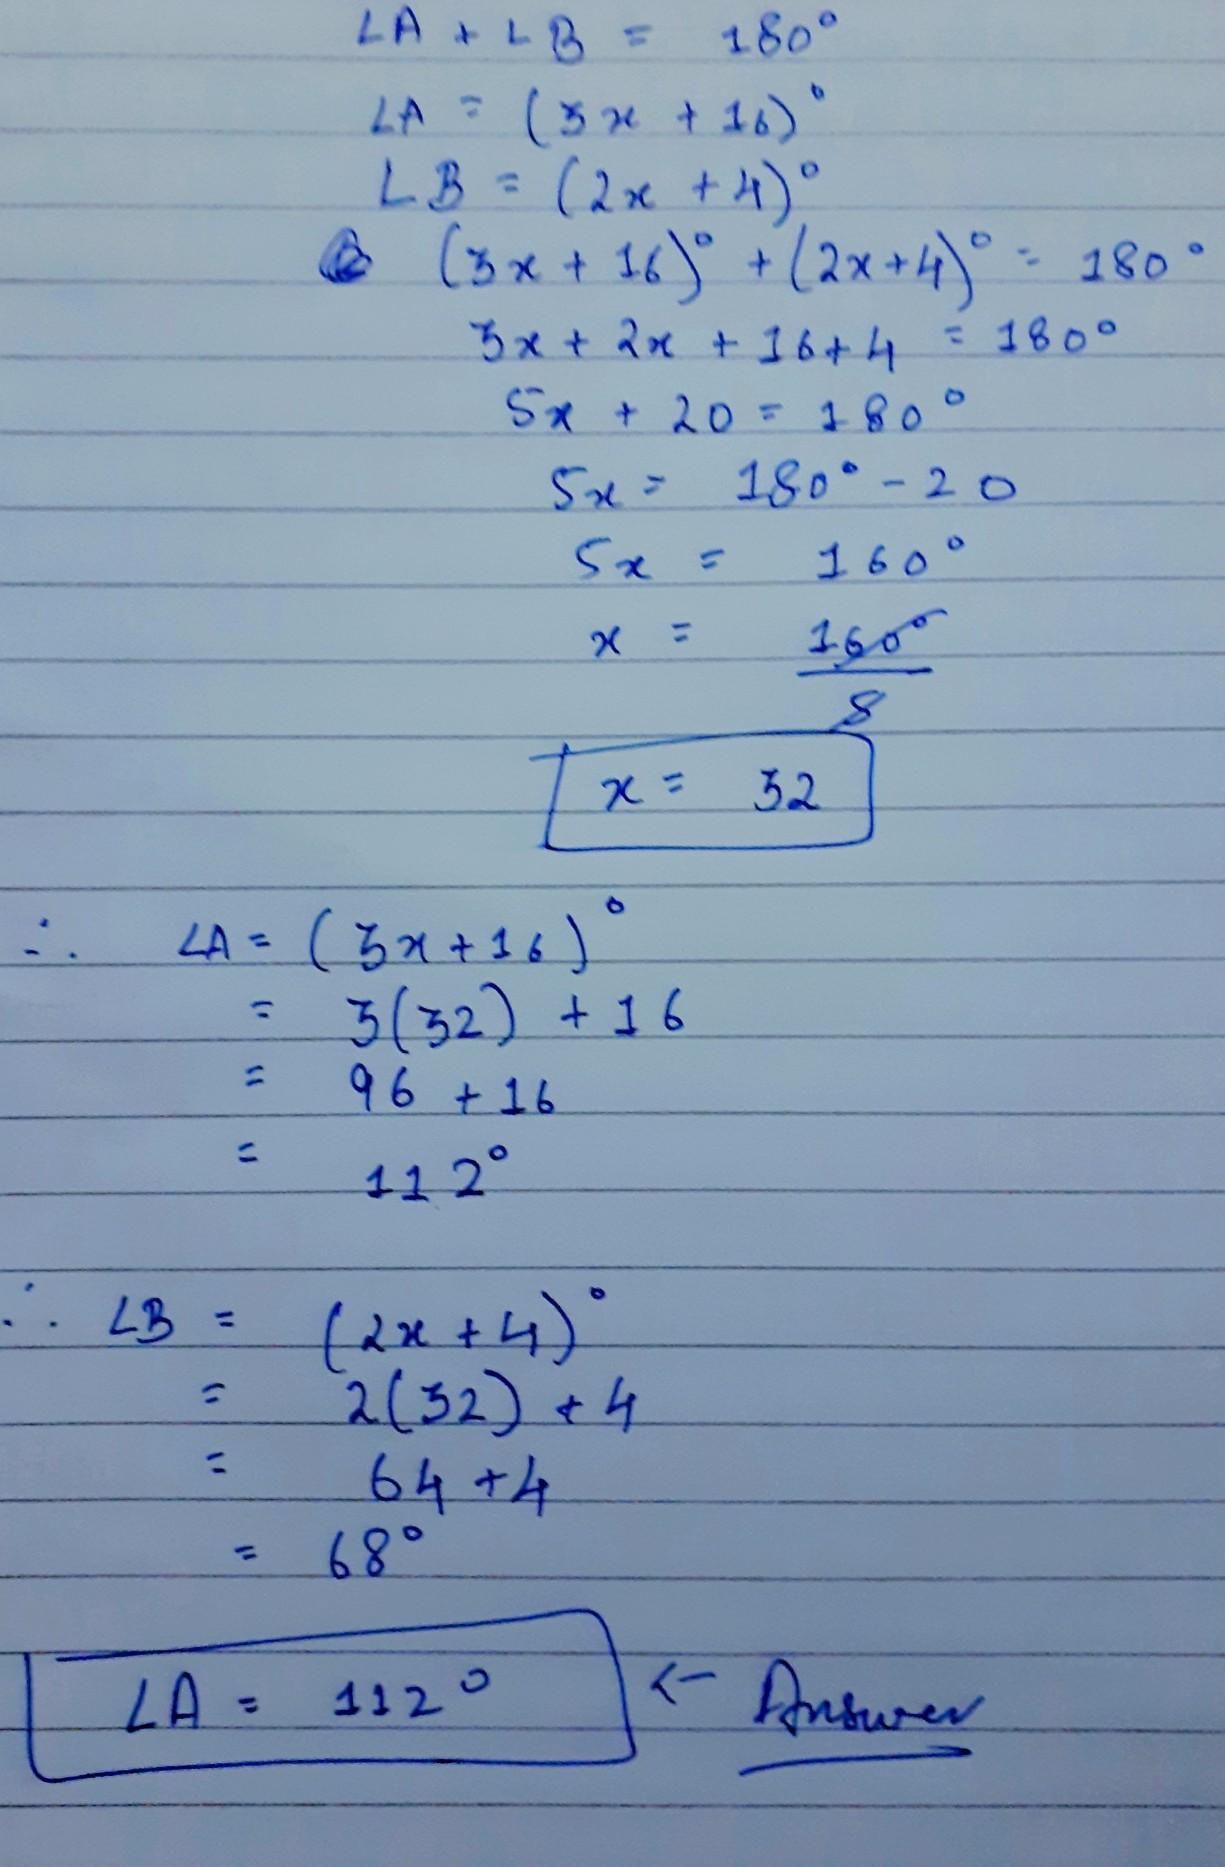 ∠A + ∠B = 180°
∠A = (3x + 16)°
∠B = (2x + 4)°
(3x + 16)° + (2x+4)° = 180°
3x + 2x + 16 + 4 = 180°
5x + 20 = 180°
5x = 180° - 20
5x = 160°
x = 160°
5
x = 32
∴ ∠A = (3x + 16)°
= 3(32) + 16
= 96 + 16
= 112°
∴ ∠B = (2x + 4)°
= 2(32) + 4
= 64 + 4
= 68°
∠A = 112° ← Answer